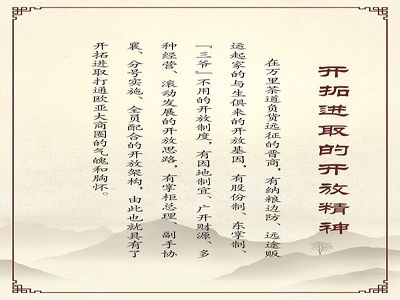 开拓进取的开放精神
在万里茶道负货远征的晋商，有纳粮边防、远途贩
运起家的与生俱来的开放基因，有股份制、东掌制、
“三爷”不用的开放制度，有因地制宜、广开财源、多
种经营、滚动发展的开放思路，有掌柜总理、副手协
襄、分号实施、全员配合的开放架构，由此也就具有了
开拓进取打通欧亚大商圈的气魄和胸怀。